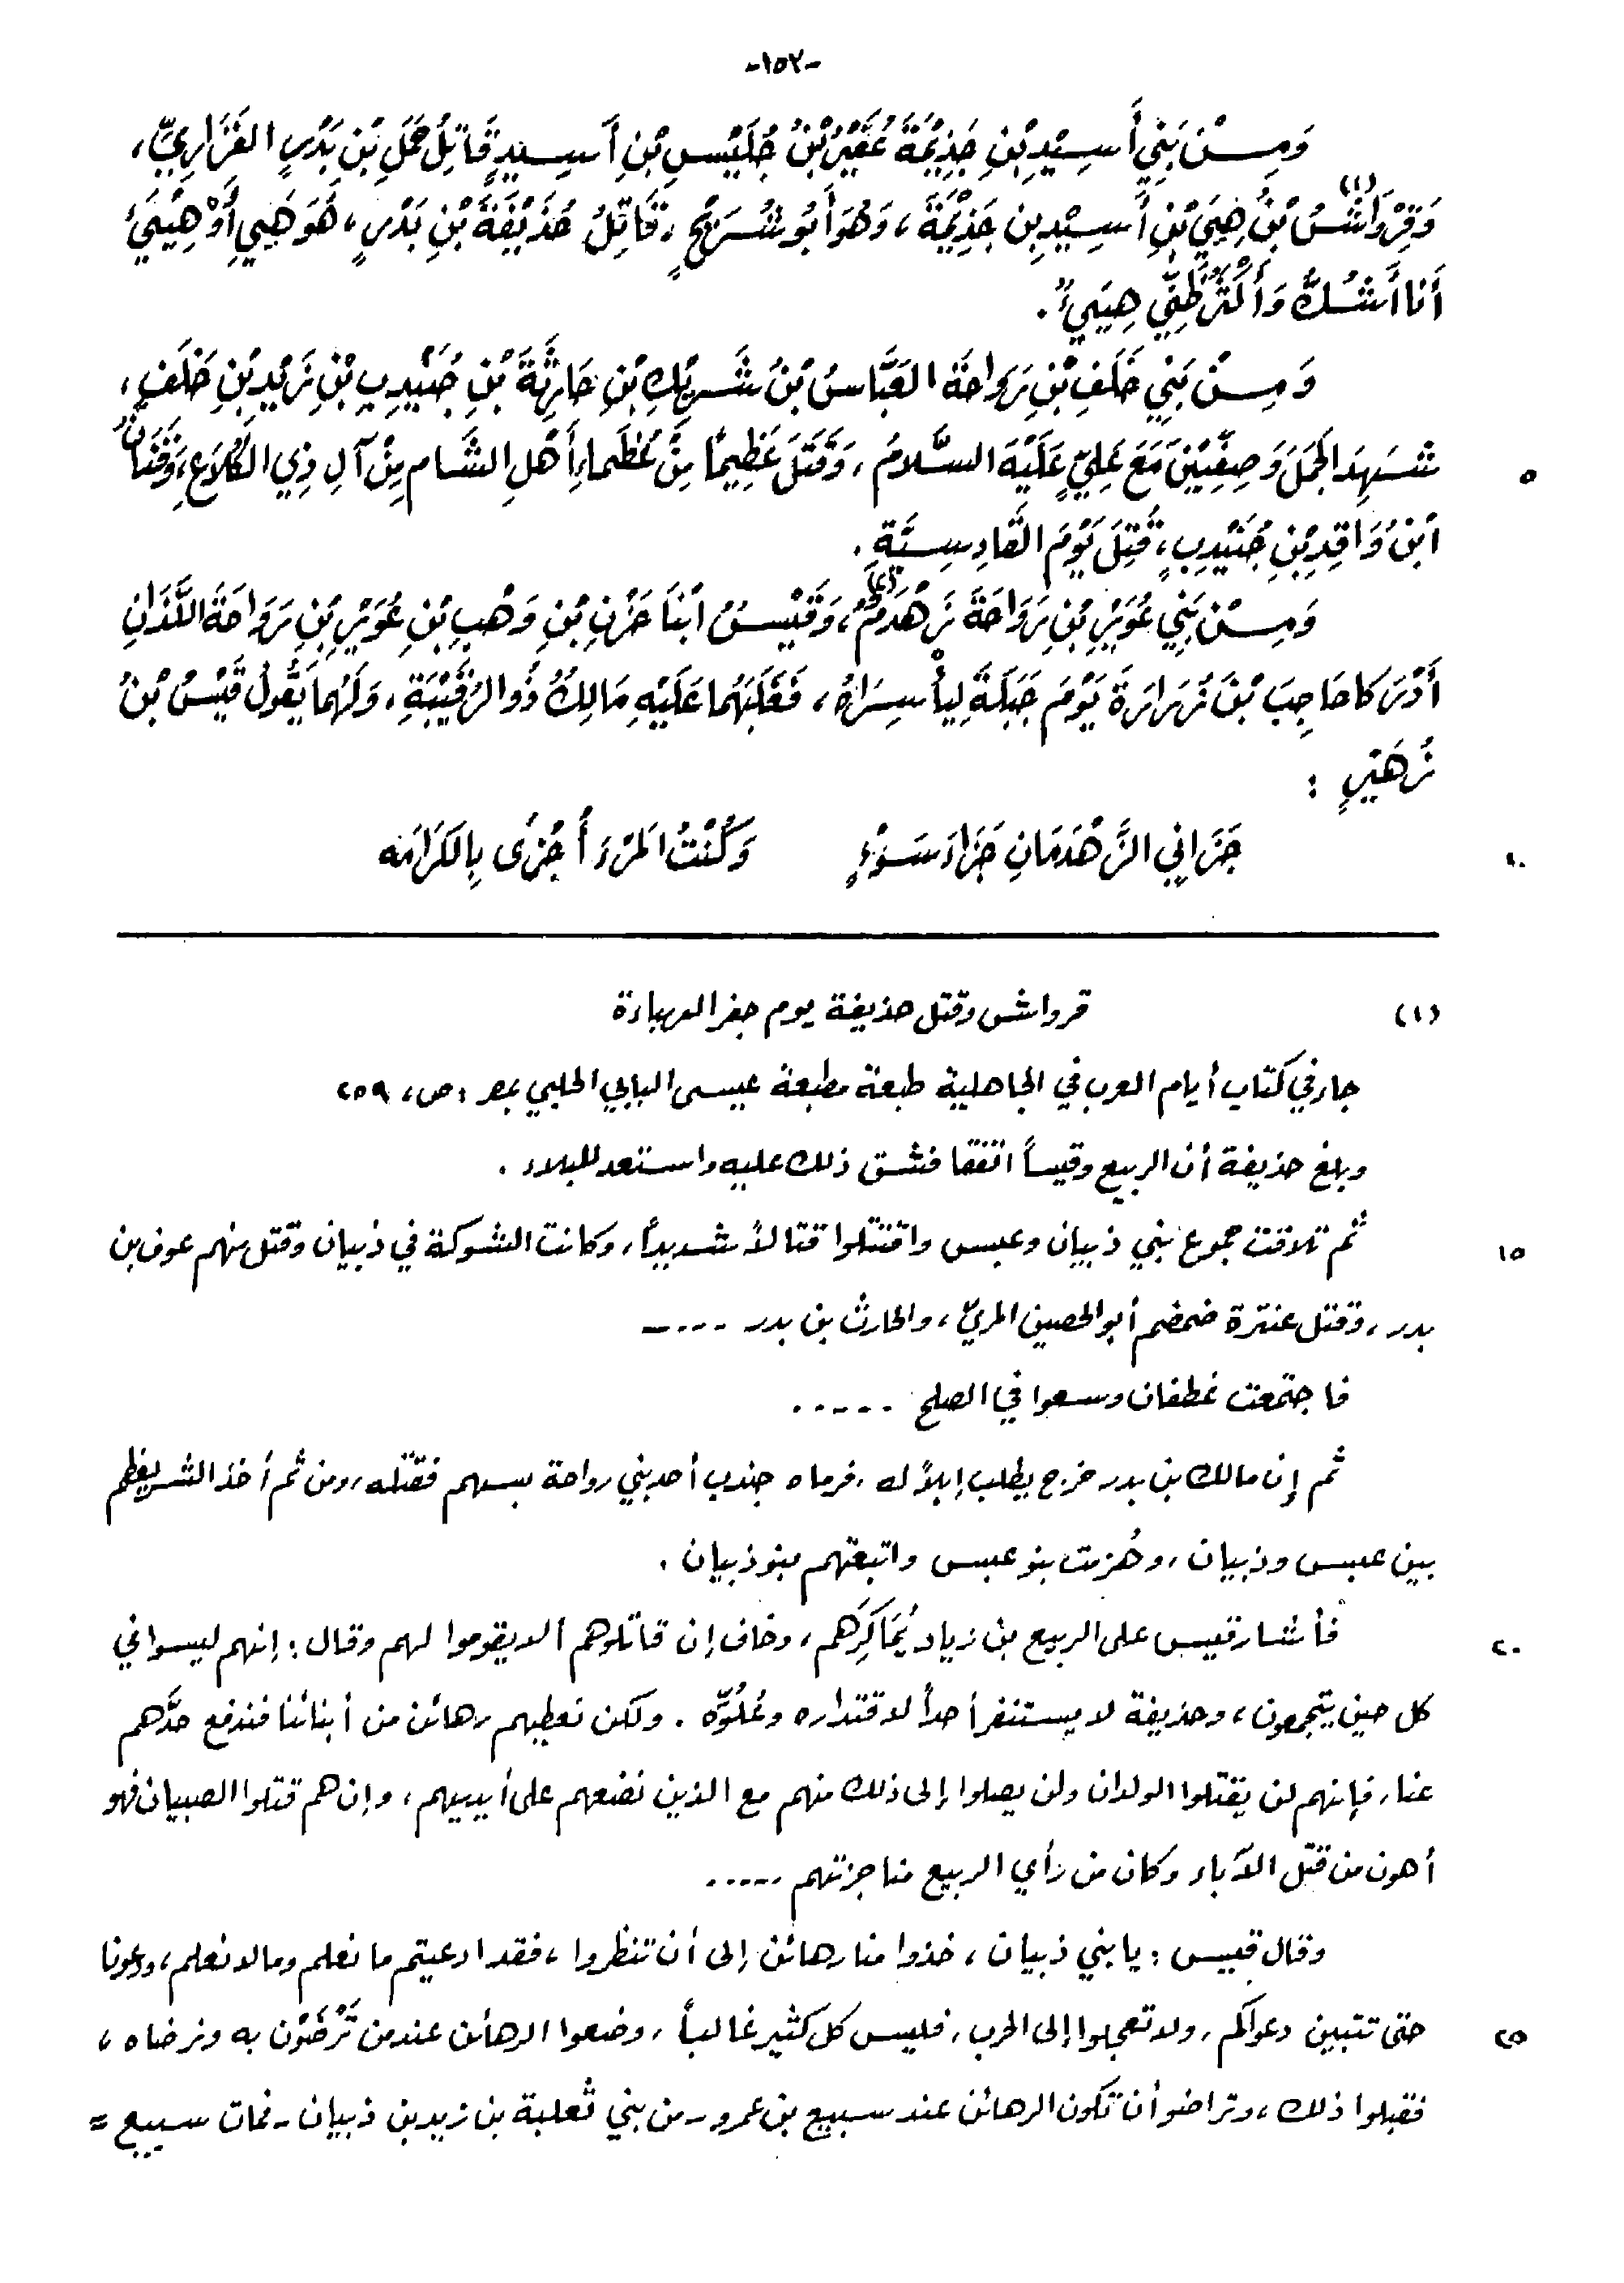 -١٥٢-
وَمِنْ بَنِي أَسِيْدِ بْنِ جَذِيْمَةَ عُقَيْرُ بْنُ حُلَيْسِ بْنِ أَسِيدٍ قَاتِلُ حَمَلِ بْنِ بَدْرٍ الفَزَارِيِّ،
وَقِرْوَاشُ (١) بْنُ هِنَيِّ بْنِ أَسِيْدِ بْنِ جَذِيْمَةَ، وَهُوَ أَبُو شُرَيْحٍ، قَاتِلُ حُذَيْفَةَ بْنِ بَدْرٍ، هُوَ هَنِيٌّ أَوْ هِنَيٌّ
أَنَا أَشُكُّ وَأَكْثَرُ ظَنِّي هِنَيٌّ.
وَمِنْ بَنِي خَلَفِ بْنِ رَوَاحَةَ العَبَّاسُ بْنُ شَرِيْكِ بْنِ حَارِثَةَ بْنِ جُنَيْدِبِ بْنِ زَيْدِ بْنِ خَلَفٍ،
شَهِدَ الجَمَلَ وَصِفِّيْنَ مَعَ عَلِيٍّ عَلَيْهِ السَّلامُ، وَقَتَلَ عَظِيماً مِنْ عُظَمَاءِ أَهْلِ الشَّامِ مِنْ آلِ ذِي الكُلَاعِ، وَقَنَانُ
٥
ابْنُ وَاقِدِ بْنِ جُنَيْدِبٍ، قُتِلَ يَوْمَ القَادِسِيَّةِ.
وَمِنْ بَنِي عُوَيْرِ بْنِ رَوَاحَةَ زَهْدَمٌ (٢)، وَقَيْسُ ابْنَا حَزْنِ بْنِ وَهْبِ بْنِ عُوَيْرِ بْنِ رَوَاحَةَ اللَّذَانِ
أَدْرَكَا حَاجِبَ بْنَ زُرَارَةَ يَوْمَ جَبَلَةَ لِيأْسِرَاهُ، فَغَلَبَهُمَا عَلَيْهِ مَالِكُ ذُو الرُّقَيْبَةِ، وَلَهُمَا يَقُولُ قَيْسُ بْنُ
زُهَيْرٍ :
جَزَانِي الزَّهْدَمَانِ جَزَاءَ سَوْءٍ وَكُنْتُ المَرْءَ أُجْزَى بِالكَرَامَه
١٠
(١) قرواش وقتل حذيفة يوم جفر الهباءة
جاء في كتاب أيام العرب في الجاهلية طبعة مطبعة عيسى البابي الحلبي بمصر ، ص، ٢٥٩
وبلغ حذيفة أن الربيع وقيساً اتفقا فشق ذلك عليه واستعد للبلاء .
ثم تلاقت جموع بني ذبيان وعبس واقتتلوا قتالاً شديداً، وكانت الشوكة في ذبيان وقتل منهم عوف بن
١٥
بدر، وقتل عنترة ضمضم أبو الحصين المريّ، والحارث بن بدر ----
فاجتمعت غطفان وسعوا في الصلح .----
ثم إن مالك بن بدر خرج يطلب إبلاً له، فرماه جندب أحد بني رواحة بسهم فقتله، ومن ثم أخذ الشر يعظم
بين عبس وذبيان، وهُزمت بنو عبس واتبعتهم بنو ذبيان .
فأشار قيس على الربيع بن زياد يُمَاكِرَهم، وخاف إن قاتلوهم ألا يقوموا لهم وقال : إنهم ليسوا في
٢٠
كل حين يتجمعون، وحذيفة لا يستنفر أحداً لاقتداره وعُلُوِّه . ولكن نعطيهم رهائن من أبنائنا فندفع حدَّهم
عنا، فإنهم لن يقتلوا الولدان ولن يصلوا إلى ذلك منهم مع الذين نضعهم على أيديهم، وإن هم قتلوا الصبيان فهو
أهون من قتل الآباء وكان من رأي الربيع مناجزتهم .----
وقال قيس : يا بني ذبيان ، خذوا منا رهائن إلى أن تنظروا ، فقد ادعيتم ما نعلم وما لا نعلم، ودعونا
حتى تتبين دعواكم، ولا تعجلوا إلى الحرب، فليس كل كثير غالباً، وضعوا الرهائن عند من تَرْضَوْن به ونرضاه ،
٢٥
فقبلوا ذلك، وتراضوا أن تكون الرهائن عند سبيع بن عمرو - من بني ثعلبة بن زيد بن ذبيان - فمات سبيع =